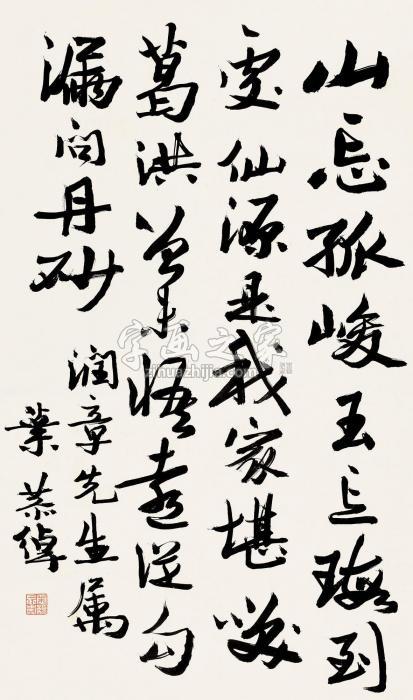 山忘孤峻玉忘瑕到
處仙源是我家堪笑
葛洪曾未悟遠從勾
漏問丹砂
潤章先生属
葉恭綽
字画之家
zihuazhijia.com